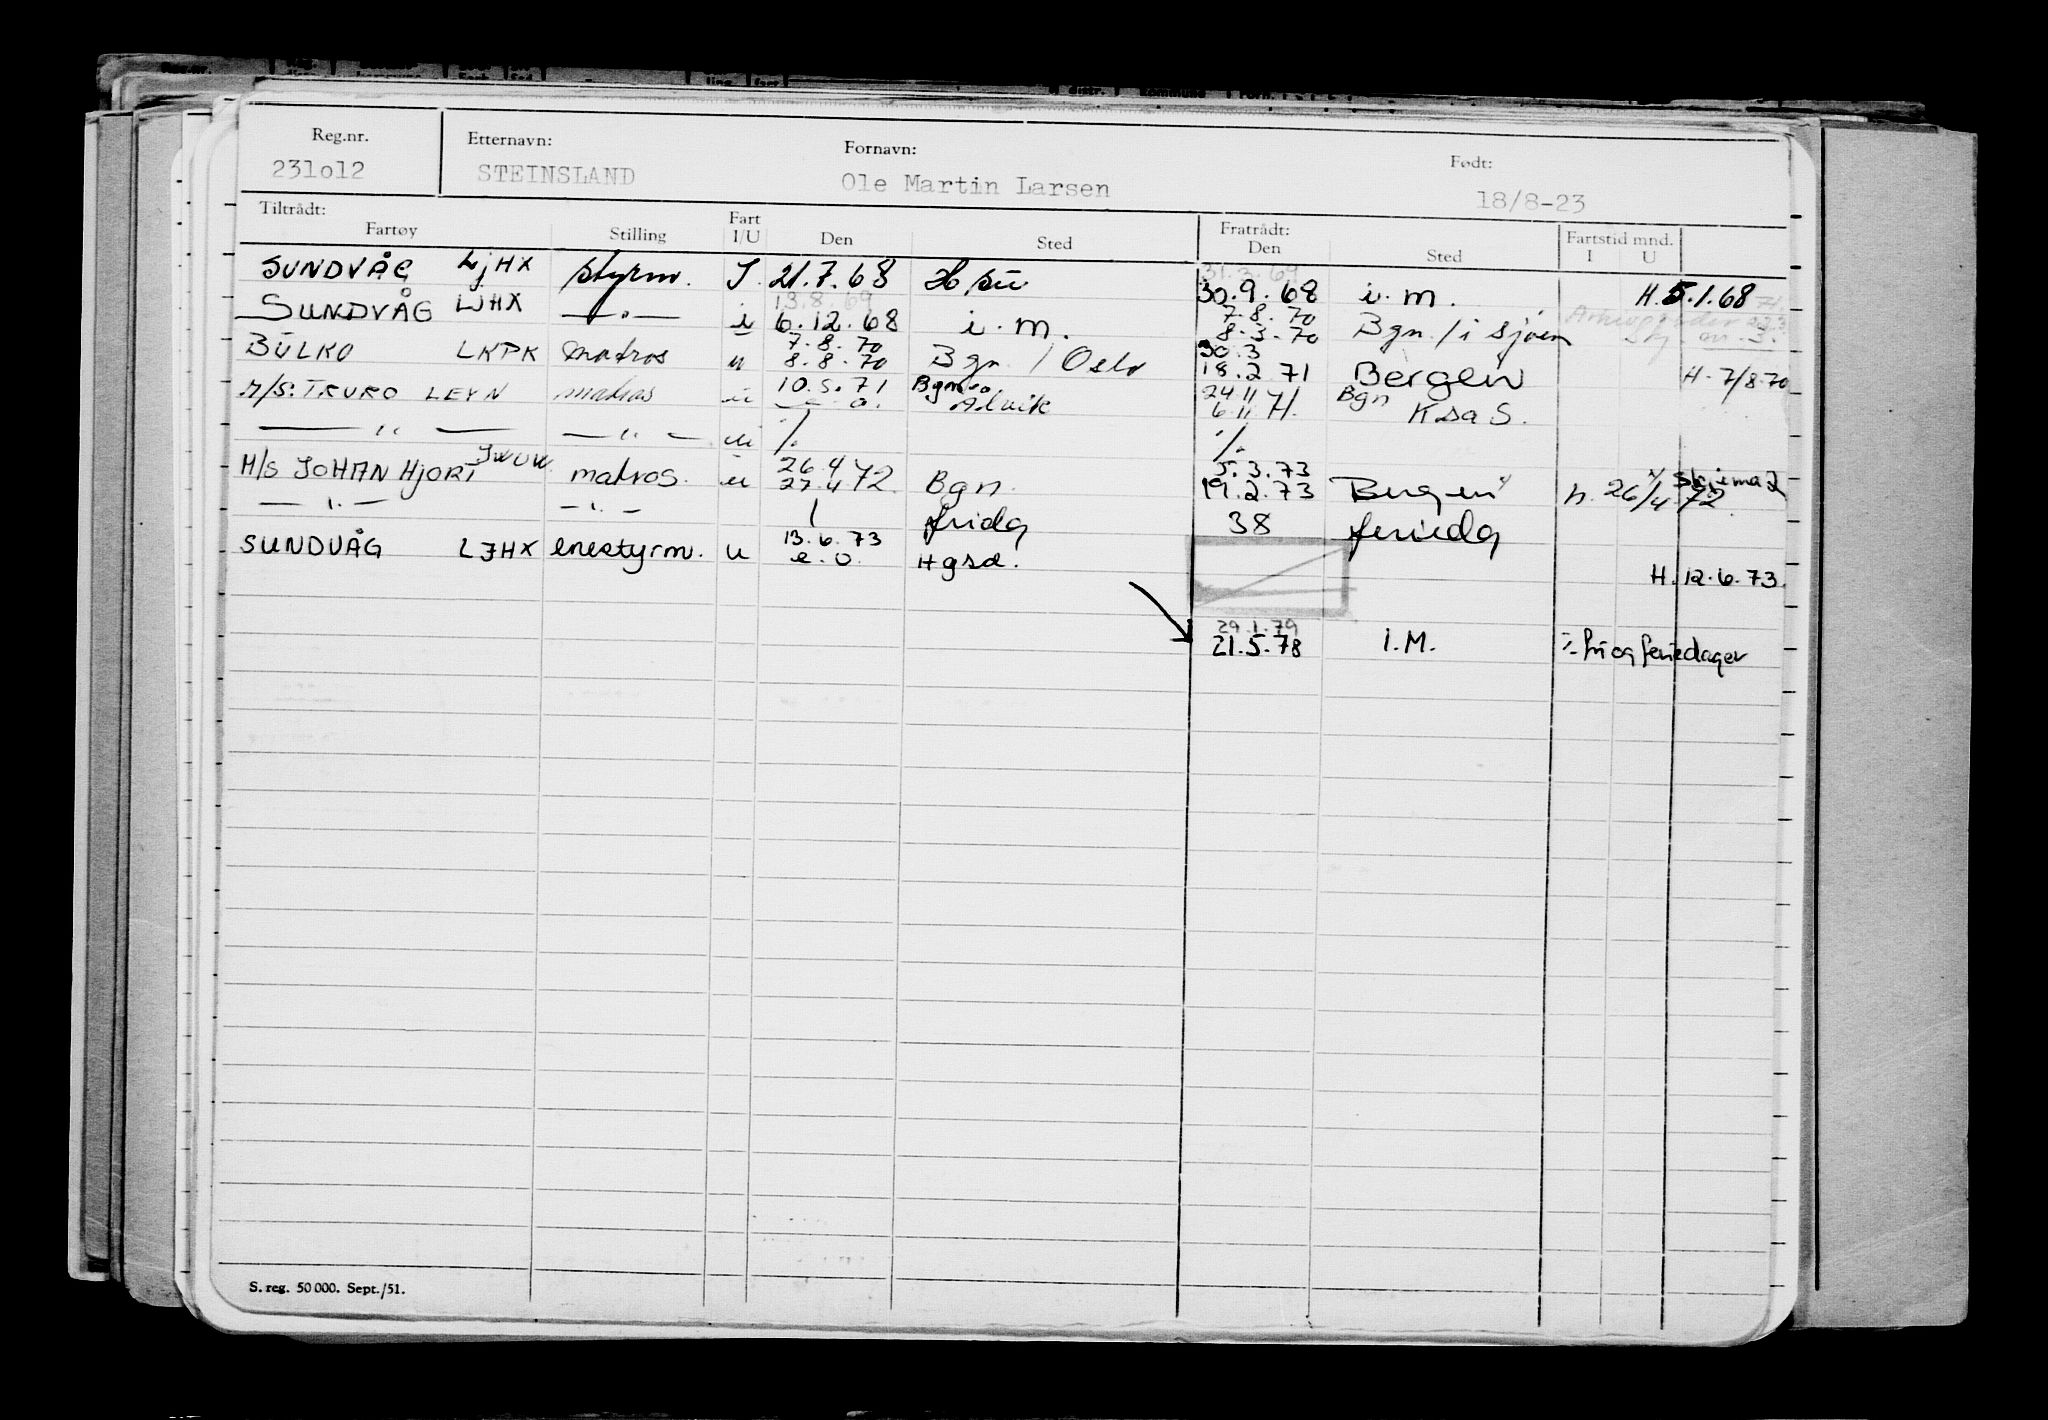 Reg.nr. Etternavn: Fornavn: Født:
231o12 STEINSLAND Ole Martin Larsen 18/8-23
Tiltrådt: Fratrådt: Fartstid mnd.
Fartøy Stilling Fart I/U Den Sted Den Sted I U
31.3.69
SUNDVÅG LJHX styrm. I 21.7.68 30.9.68 i.m. H.5.1.68
13.8.69 7.8.70
SUNDVÅG LJHX —"— i 6.12.68 i.m. 8.3.70 Bgn./i sjøen
7.8.70 30.3
BULKO LKPK matros u 8.8.70 Bgn / Oslo 18.2.71 Bergen H. 7/8.70
10.5.71 Bgn 24.11 Bgn
M/S. TRURO LEYN matros u Ålvik 6.11 71. KsaS.
—"— —"— u ./. ./.
26.4 5.3.73 Skjema 2
M/S JOHAN HJORT JWUW matros. u 27.4 72. Bgn. 19.2.73 Bergen h. 26/4 72.
—"— —"— / fridg 38 feriedg
13.6.73
SUNDVÅG LJHX enestyrm. u e.o. Hgsd.
H. 12.6.73.
29.1.79
21.5.78 i.M. ./. fri og feriedager
S. reg. 50 000. Sept./51.